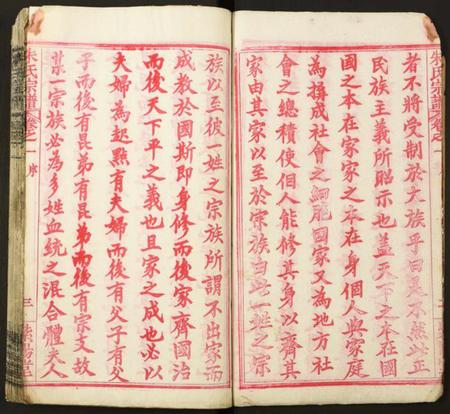 者不將受制於大族乎曰是不然此正
民族主義所昭示也蓋天下之本在國
國之本在家家之本在身個人與家庭
為構成社會之細胞國家又為地方社
會之總積使個人能修其身以齊其
家由其家以至於宗族由此一姓之宗
族以至彼一姓之宗族所謂不出家而
成教於國斯即身修而後家齊國治
而後天下平之義也且家之成也必以
夫婦為起點有夫婦而後有父子有父
子而後有昆弟有昆弟而後有宗支故
某一宗族必為多姓血統之混合體夫人
朱氏宗譜 卷之一 序 三
朱氏宗譜卷之一